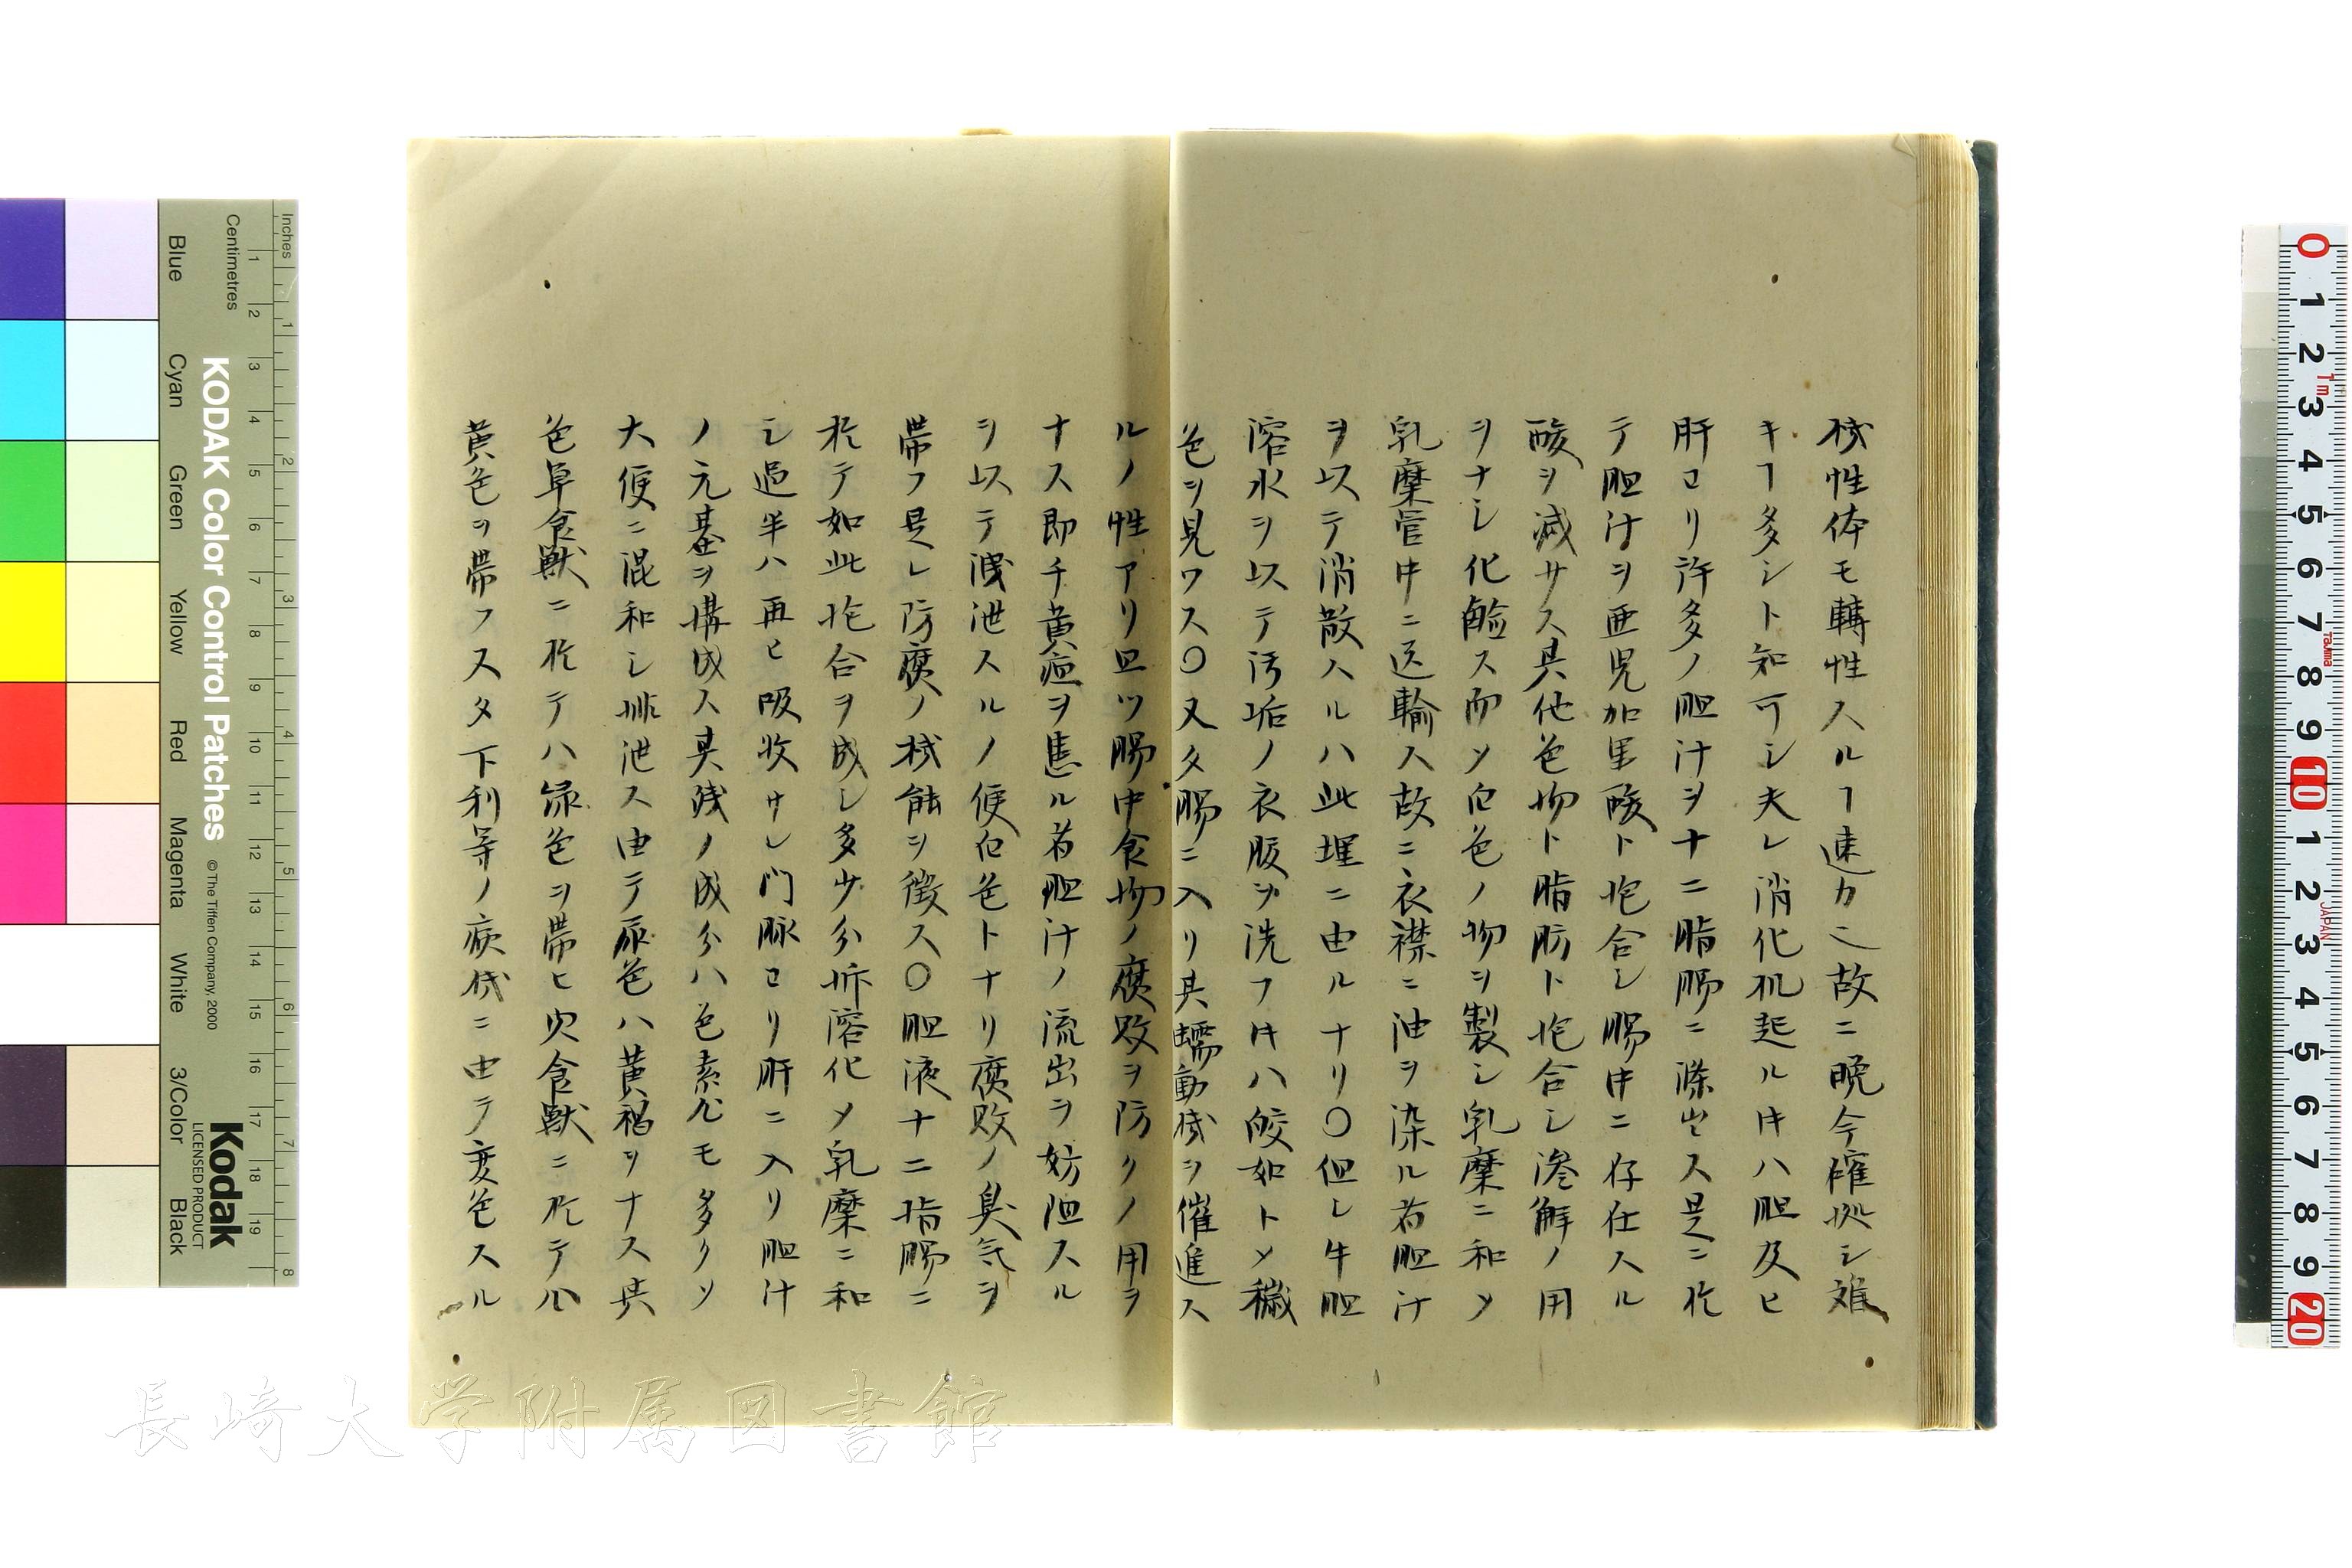 核性体モ轉性スルヿ速カニ故ニ晩今確拠シ難
キヿ多シト知可シ夫レ消化机起ルキハ胆及ヒ
肝ヨリ許多ノ胆汁ヲ十二脂腸ニ滌出ス是ニ於
テ胆汁ヲ亜児加里酸ト抱合シ腸中ニ存在スル
酸ヲ減サス其他色物ト脂肪ト抱合シ滲解ノ用
ヲナシ化鹸ス而ソ白色ノ物ヲ製シ乳糜ニ和メ
乳糜管中ニ送輸ス故ニ衣襟ニ油ヲ染ル者胆汁
ヲ以テ消散スルハ此理ニ由ルナリ〇但シ牛胆
溶水ヲ以テ汚垢ノ衣服ヲ洗フキハ皎如トメ穢
色ヲ見ワス〇又タ腸ニ入リ其蠕動機ヲ催進ス
ルノ性アリ且ツ腸中食物ノ腐敗ヲ防クノ用ヲ
ナス即チ黄疸ヲ患ル者胆汁ノ流出ヲ妨阻スル
ヲ以テ洩泄スルノ便白色トナリ腐敗ノ臭気ヲ
帯フ是レ防腐ノ機能ヲ徴ス〇胆液十二指腸ニ
於テ如此抱合ヲ成シ多少分拆溶化メ乳糜ニ和
シ過半ハ再ヒ吸收サレ門脉ヨリ肝ニ入リ胆汁
ノ元基ヲ構成ス其残ノ成分ハ色素尤モ多クソ
大便ニ混和シ排泄ス由テ尿色ハ黄褐ヲナス其
色草食獣ニ於テハ緑色ヲ帯ヒ肉食獣ニ於テハ
黄色ヲ帯フ又タ下利等ノ病機ニ由テ変色スル
KODAK Color Control Patches
©The Tiffen Company, 2000
Kodak
LICENSED PRODUCT
Inches
Centimetres
Blue
Cyan
Green
Yellow
Red
Magenta
White
3/Color
Black
長崎大学附属図書館